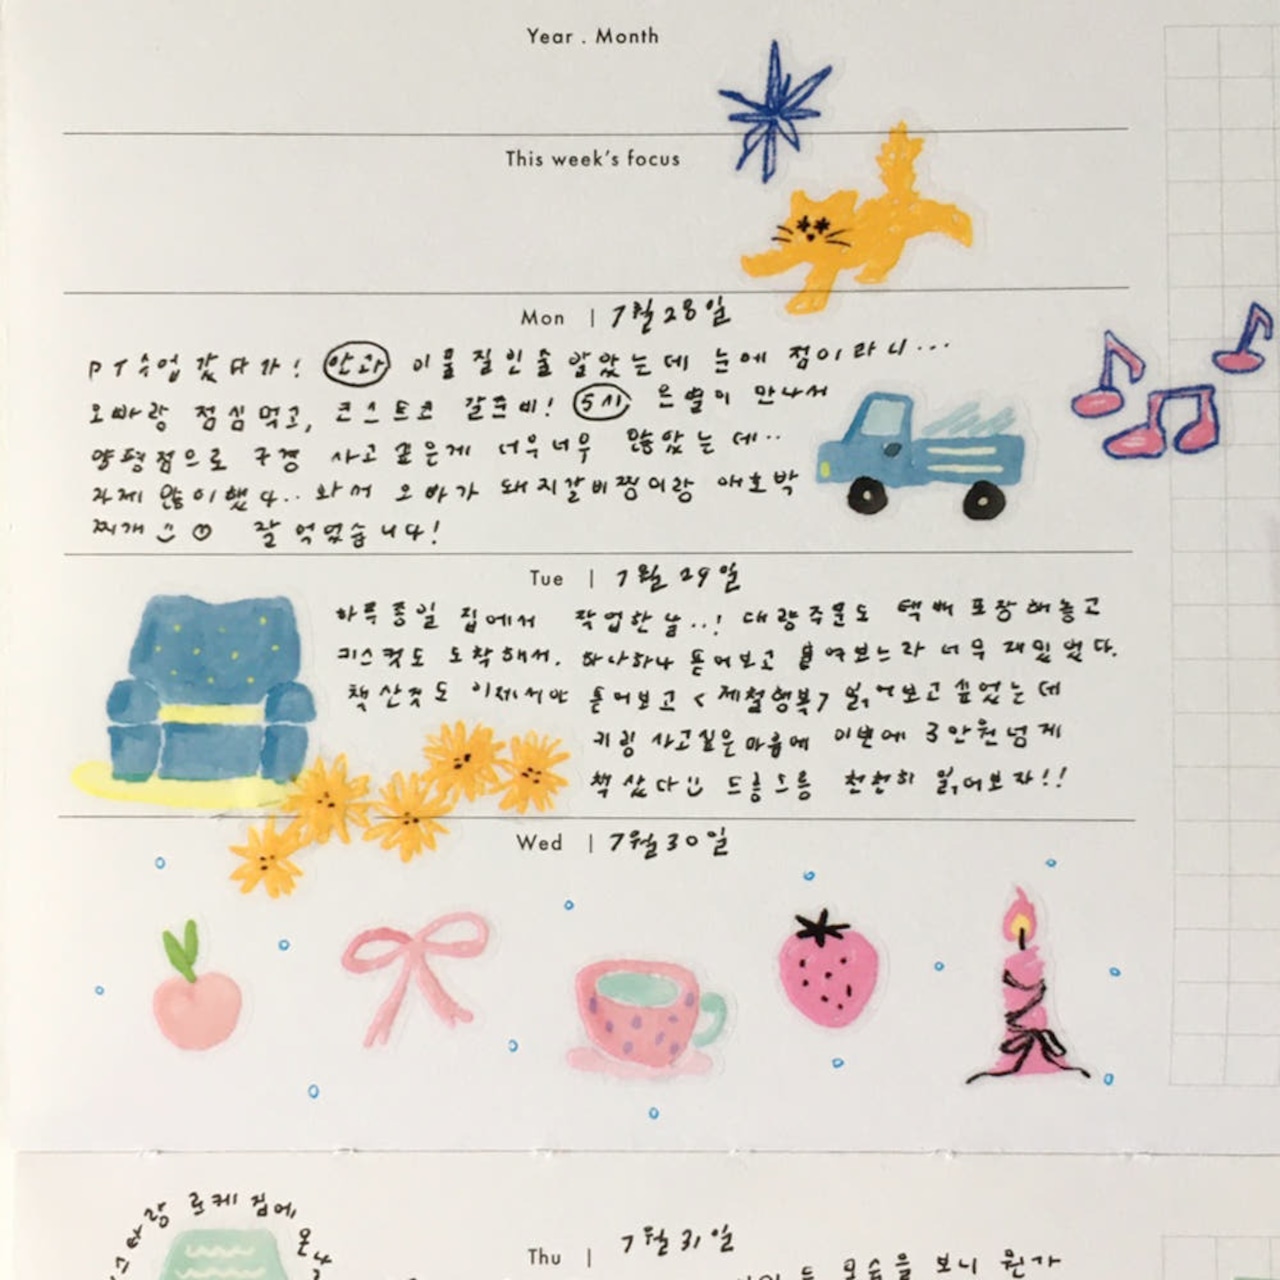 Year . Month
This week's focus
Mon | 7월 28일
PT수업 갔다가! 안과 이물질인줄 알았는데 눈에 점이라니...
오빠랑 점심먹고, 코스트코 갈준비! 5시 은별이 만나서
양평점으로 구경 사고 싶은게 너무너무 많았는데..
자제 많이했다.. 와서 오빠가 돼지갈비찜이랑 애호박
찌개 잘 먹었습니다!
Tue | 7월 29일
하루종일 집에서 작업한날..! 대량주문도 택배 포장해놓고
키스컷도 도착해서. 하나하나 뜯어보고 붙여보느라 너무 재밌었다.
책 산것도 이제서야 뜯어보고 <제철행복> 읽어보고싶었는데
키링 사고싶은마음에 이번에 3만원넘게
책 샀다 드릉드릉 천천히 읽어보자!!
Wed | 7월30일
로케 집에
Thu | 7월 31일
모습을 보니 뭔가